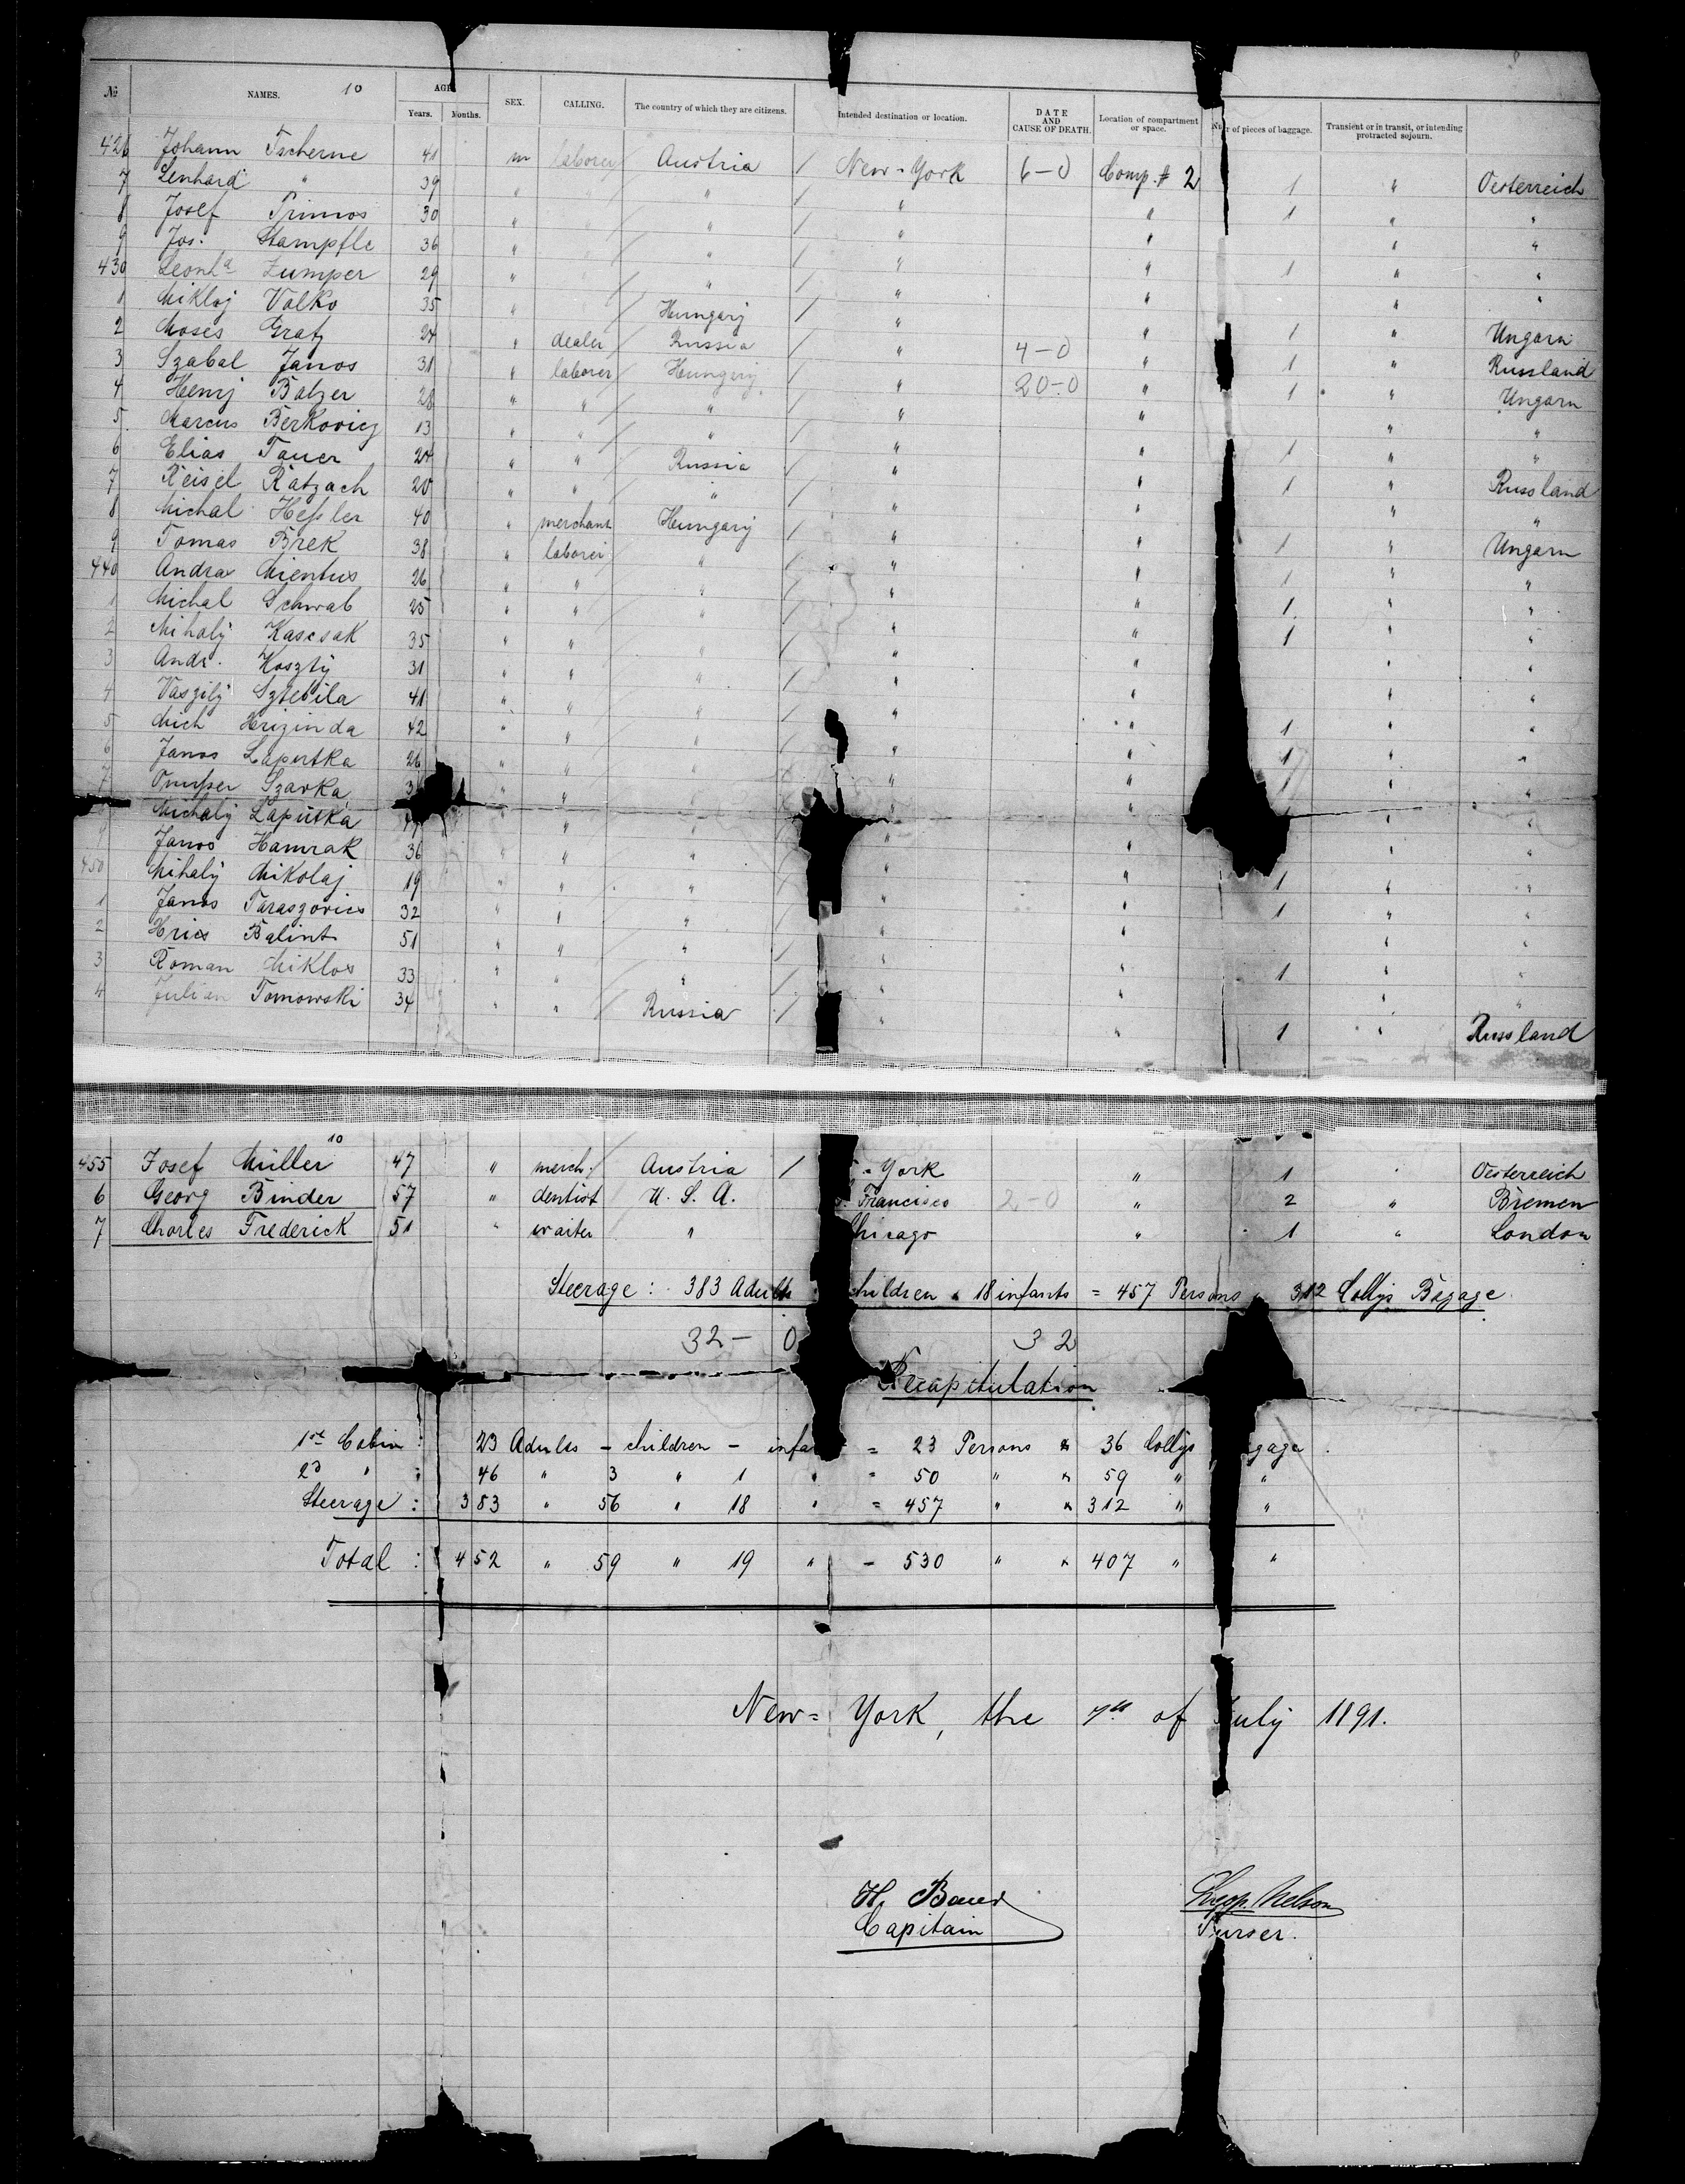 № NAMES. 10 AGE Years. Months. SEX. CALLING. The country of which they are citizens. Intended destination or location. DATE AND CAUSE OF DEATH. Location of compartment or space. r of pieces of baggage. Transient or in transit, or intending protracted sojourn.
426 Johann Tscherne 41 m laborer Austria / New-York 6-0 Comp. # 2 1 " Oesterreich
7 Lenhard " 39 " " " / " " 1 " "
8 Josef Primos 30 " " " / " " " "
9 Jos. Stampfle 36 " " " / " " 1 " "
430 Leonhd Zumper 29 " " " / " " " "
1 Miklaj Valko 35 " " Hungary / " " 1 " Ungarn
2 Moses Gratz 24 " dealer Russia / " 4-0 " 1 " Russland
3 Szabal Janos 31 " laborer Hungary / " 20-0 " 1 " Ungarn
4 Henrj Balzer 28 " " " / " " " "
5 Marcus Berkovicz 13 " " " / " " 1 " "
6 Elias Tauer 24 " " Russia / " " 1 " Russland
7 Reisel Ratzach 20 " " " / " " " "
8 Michal Heßler 40 " merchant Hungary / " " 1 " Ungarn
9 Tomas Brek 38 " laborer " / " " 1 " "
440 Andra Mientus 26 " " " / " " 1 " "
1 Michal Schwab 25 " " " / " " 1 " "
2 Mihaly Kascsak 35 " " " / " " " "
3 Andr. Koszty 31 " " " / " " " "
4 Vaszily Sztebila 41 " " " / " " 1 " "
5 Mich Hrizinda 42 " " " / " " 1 " "
6 Janos Laputka 26 " " " / " " 1 " "
7 Szarka 3 " " " / " " " "
Michaly Laputka " " " / " " " "
9 Janos Hamrak 36 " " " / " " 1 " "
450 Mihaly Mikolaj 19 " " " / " " 1 " "
1 Janos Taraszovics 32 " " " / " " " "
2 Hrics Balint 51 " " " / " " 1 " "
3 Roman Miklos 33 " " " / " " " "
4 Julian Tomowski 34 " " Russia / " " 1 " Russland
10
455 Josef Müller 47 " merch. Austria / York " 1 " Oesterreich
6 Georg Binder 57 " dentist U. S. A. Francisco 2-0 " 2 " Bremen
7 Charles Frederick 51 " waiter " Chicago " 1 " London
Steerage : 383 Adults children & 18 infants = 457 Persons 312 Collys Bagage
32- 0 32
Recapitulation
1st Cabin : 23 Adults - children - infa = 23 Persons & 36 Collys gage.
2d " : 46 " 3 " 1 " = 50 " & 59 " "
Steerage : 383 " 56 " 18 " = 457 " & 312 " "
Total : 452 " 59 " 19 " - 530 " & 407 " "
New-York, the 7th of July 1891.
H. Bauer Nelson
Capitain Purser.